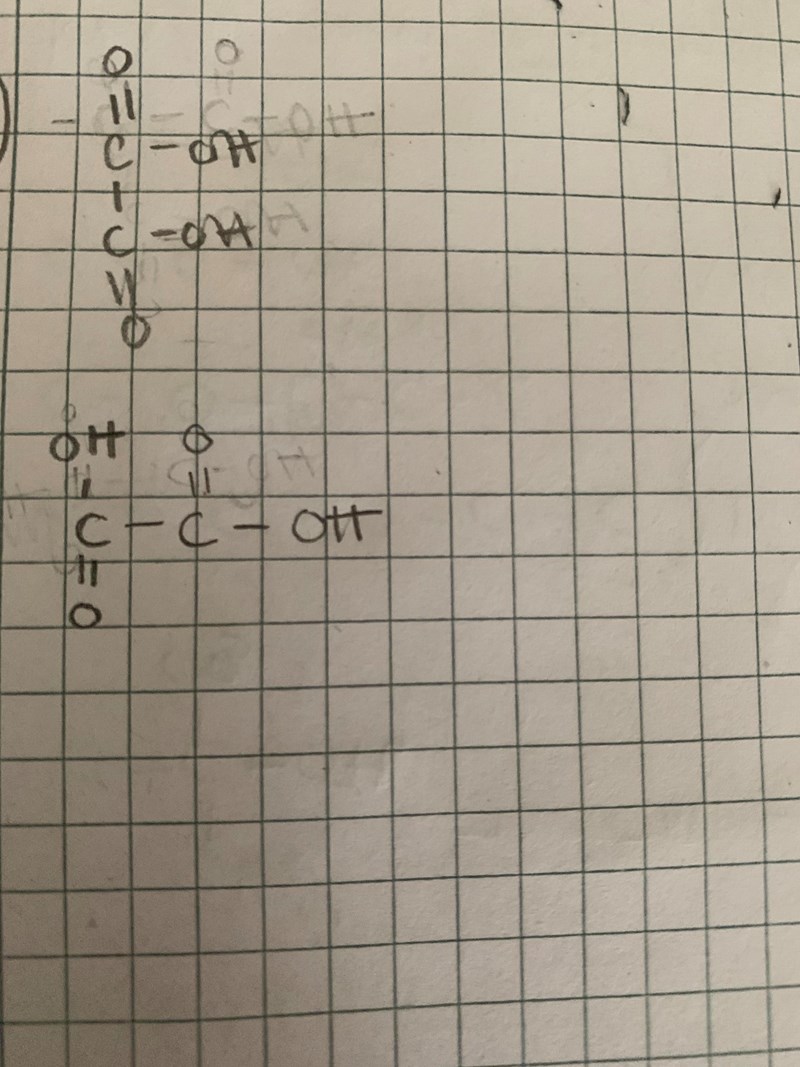 O
||
C - OH
|
C - OH
||
O
OH O
| ||
C - C - OH
||
O